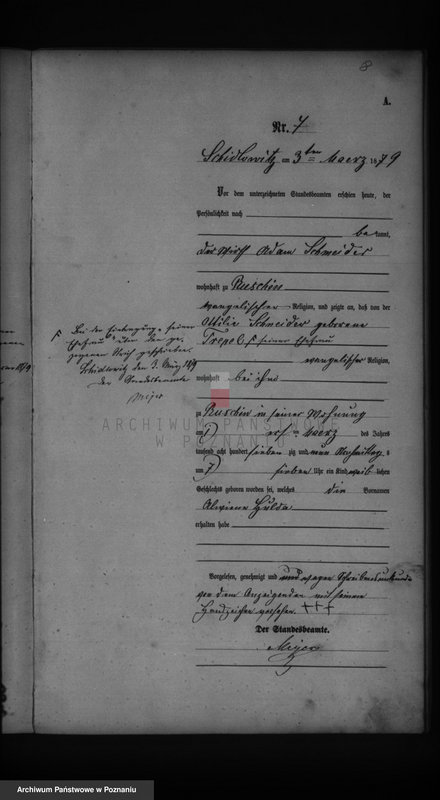 8
A.
Nr. 7
Schidlowitz am 3ten Maerz 1879
Vor dem unterzeichneten Standesbeamten erschien heute, der
Persönlichkeit nach
bekannt,
der Wirth Adam Schneider
wohnhaft zu Ruschin
evangelischer Religion, und zeigte an, daß von der
Ottilie Schneider geborene
Trepel, F seiner Ehefrau
evangelischer Religion,
wohnhaft bei ihm
zu Ruschin in seiner Wohnung
am 1 ersten Maerz des Jahres
tausend acht hundert siebenzig und neun Nachmittag s
um 7 sieben Uhr ein Kind weiblichen
Geschlechts geboren worden sei, welches die Vornamen
Alwiene Hulda
erhalten habe
Vorgelesen, genehmigt und wegen Schreibensunkunde
von dem Anzeigenden mit seinem
Handzeichen versehen. +++
Der Standesbeamte.
Meyer
F Bei der Eintragung "seiner
Ehefrau" über den ge-
zogenen Strich geschrieben.
Schidlowitz den 3. März 1879
Der Standesbeamte
Meyer
ARCHIWUM PAŃSTWOWE
W POZNANIU
Archiwum Państwowe w Poznaniu